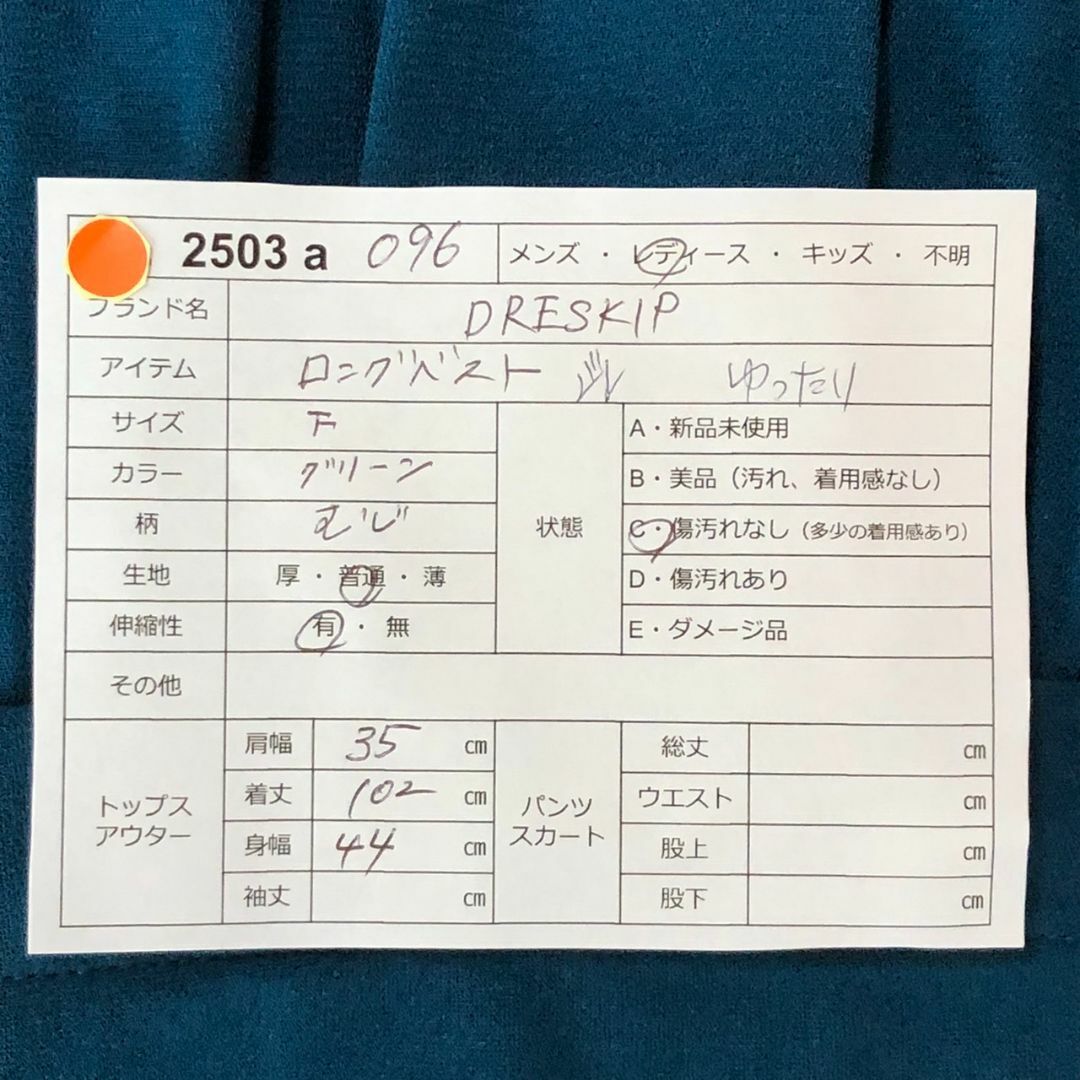 2503 a 096 メンズ ・ レディース ・ キッズ ・ 不明
ブランド名 DRESKIP
アイテム ロングベスト ゆったり
サイズ F
カラー グリーン
柄 むじ
生地 厚 ・ 普通 ・ 薄
伸縮性 有 ・ 無
状態
A・新品未使用
B・美品（汚れ、着用感なし）
C・傷汚れなし（多少の着用感あり）
D・傷汚れあり
E・ダメージ品
その他
トップス
アウター
肩幅 35 cm
着丈 102 cm
身幅 44 cm
袖丈 cm
パンツ
スカート
総丈 cm
ウエスト cm
股上 cm
股下 cm